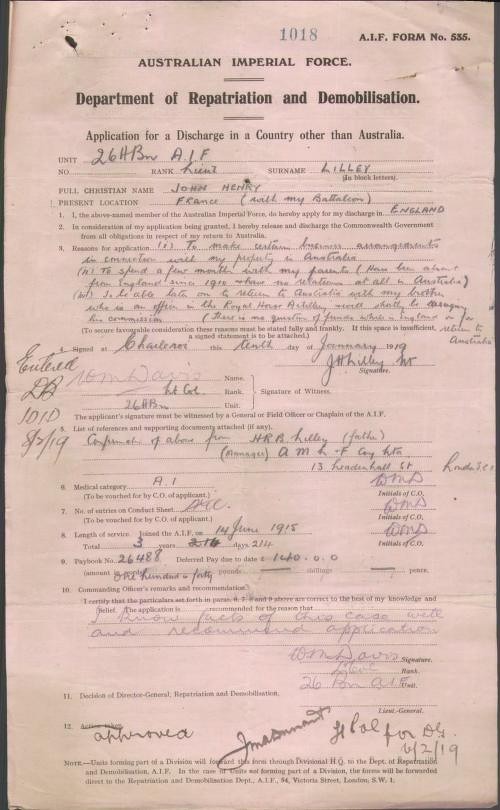 1018
A.I.F. FORM No. 535.
AUSTRALIAN IMPERIAL FORCE.
Department of Repatriation and Demobilisation.
Application for a Discharge in a Country other than Australia.
UNIT 26th Bn A.I.F
NO. RANK Lieut SURNAME LILLEY
(In block letters).
FULL CHRISTIAN NAME JOHN HENRY
PRESENT LOCATION FRANCE (with my Battalion)
1. I, the above-named member of the Australian Imperial Force, do hereby apply for my discharge in ENGLAND
2. In consideration of my application being granted, I hereby release and discharge the Commonwealth Government
from all obligations in respect of my return to Australia.
3. Reasons for application (i) To make certain business arrangements
in connection with my property in Australia
(ii) To spend a few months with my parents (Have been absent
from England since 1910 & have no relations at all in Australia)
(iii) To be able later on to return to Australia with my brother
who is an officer in the Royal Horse Artillery and shortly to resign
his commission (There is no question of funds while in England or for
return to
Australia
(To secure favorable consideration these reasons must be stated fully and frankly. If this space is insufficient,
a signed statement is to be attached.)
4. Signed at Charleroi this tenth day of January 1919
JHLilley Lt
Signature.
Entered
DB
1010
8/2/19
WM Davis Name.
Lt Col Rank. Signature of Witness.
26th Bn Unit.
The applicant's signature must be witnessed by a General or Field Officer or Chaplain of the A.I.F.
5. List of references and supporting documents attached (if any).
Confirmation of above from H.R.B. Lilley (father)
(Manager) A M L & F Coy Ltd
13 Leadenhall St London E.C.3
6. Medical category A.1 WMD
(To be vouched for by C.O. of applicant.) Initials of C.O.
7. No. of entries on Conduct Sheet WMD
(To be vouched for by C.O. of applicant.) Initials of C.O.
8. Length of service. Joined the A.I.F. on 14 June 1915 WMD
Total 3 years days 214 Initials of C.O.
9. Paybook No. 26488 Deferred Pay due to date £ 140.0.0
(amount in One hundred & forty pounds — shillings — pence.
10. Commanding Officer's remarks and recommendation:
I certify that the particulars set forth in paras. 6, 7, 8 and 9 above are correct to the best of my knowledge and
belief. The application is recommended for the reason that
I know facts of this case well
and recommend application
WM Davis Signature.
Lt Col Rank.
26 Bn A.I.F. Unit.
11. Decision of Director-General, Repatriation and Demobilisation.
Lieut.-General.
12. Action taken
approved
Lt Col for DG
6/2/19
NOTE.—Units forming part of a Division will forward this form through Divisional H.Q. to the Dept. of Repatriation
and Demobilisation, A.I.F. In the case of Units not forming part of a Division, the forms will be forwarded
direct to the Repatriation and Demobilisation Dept., A.I.F., 54, Victoria Street, London, S.W. 1.